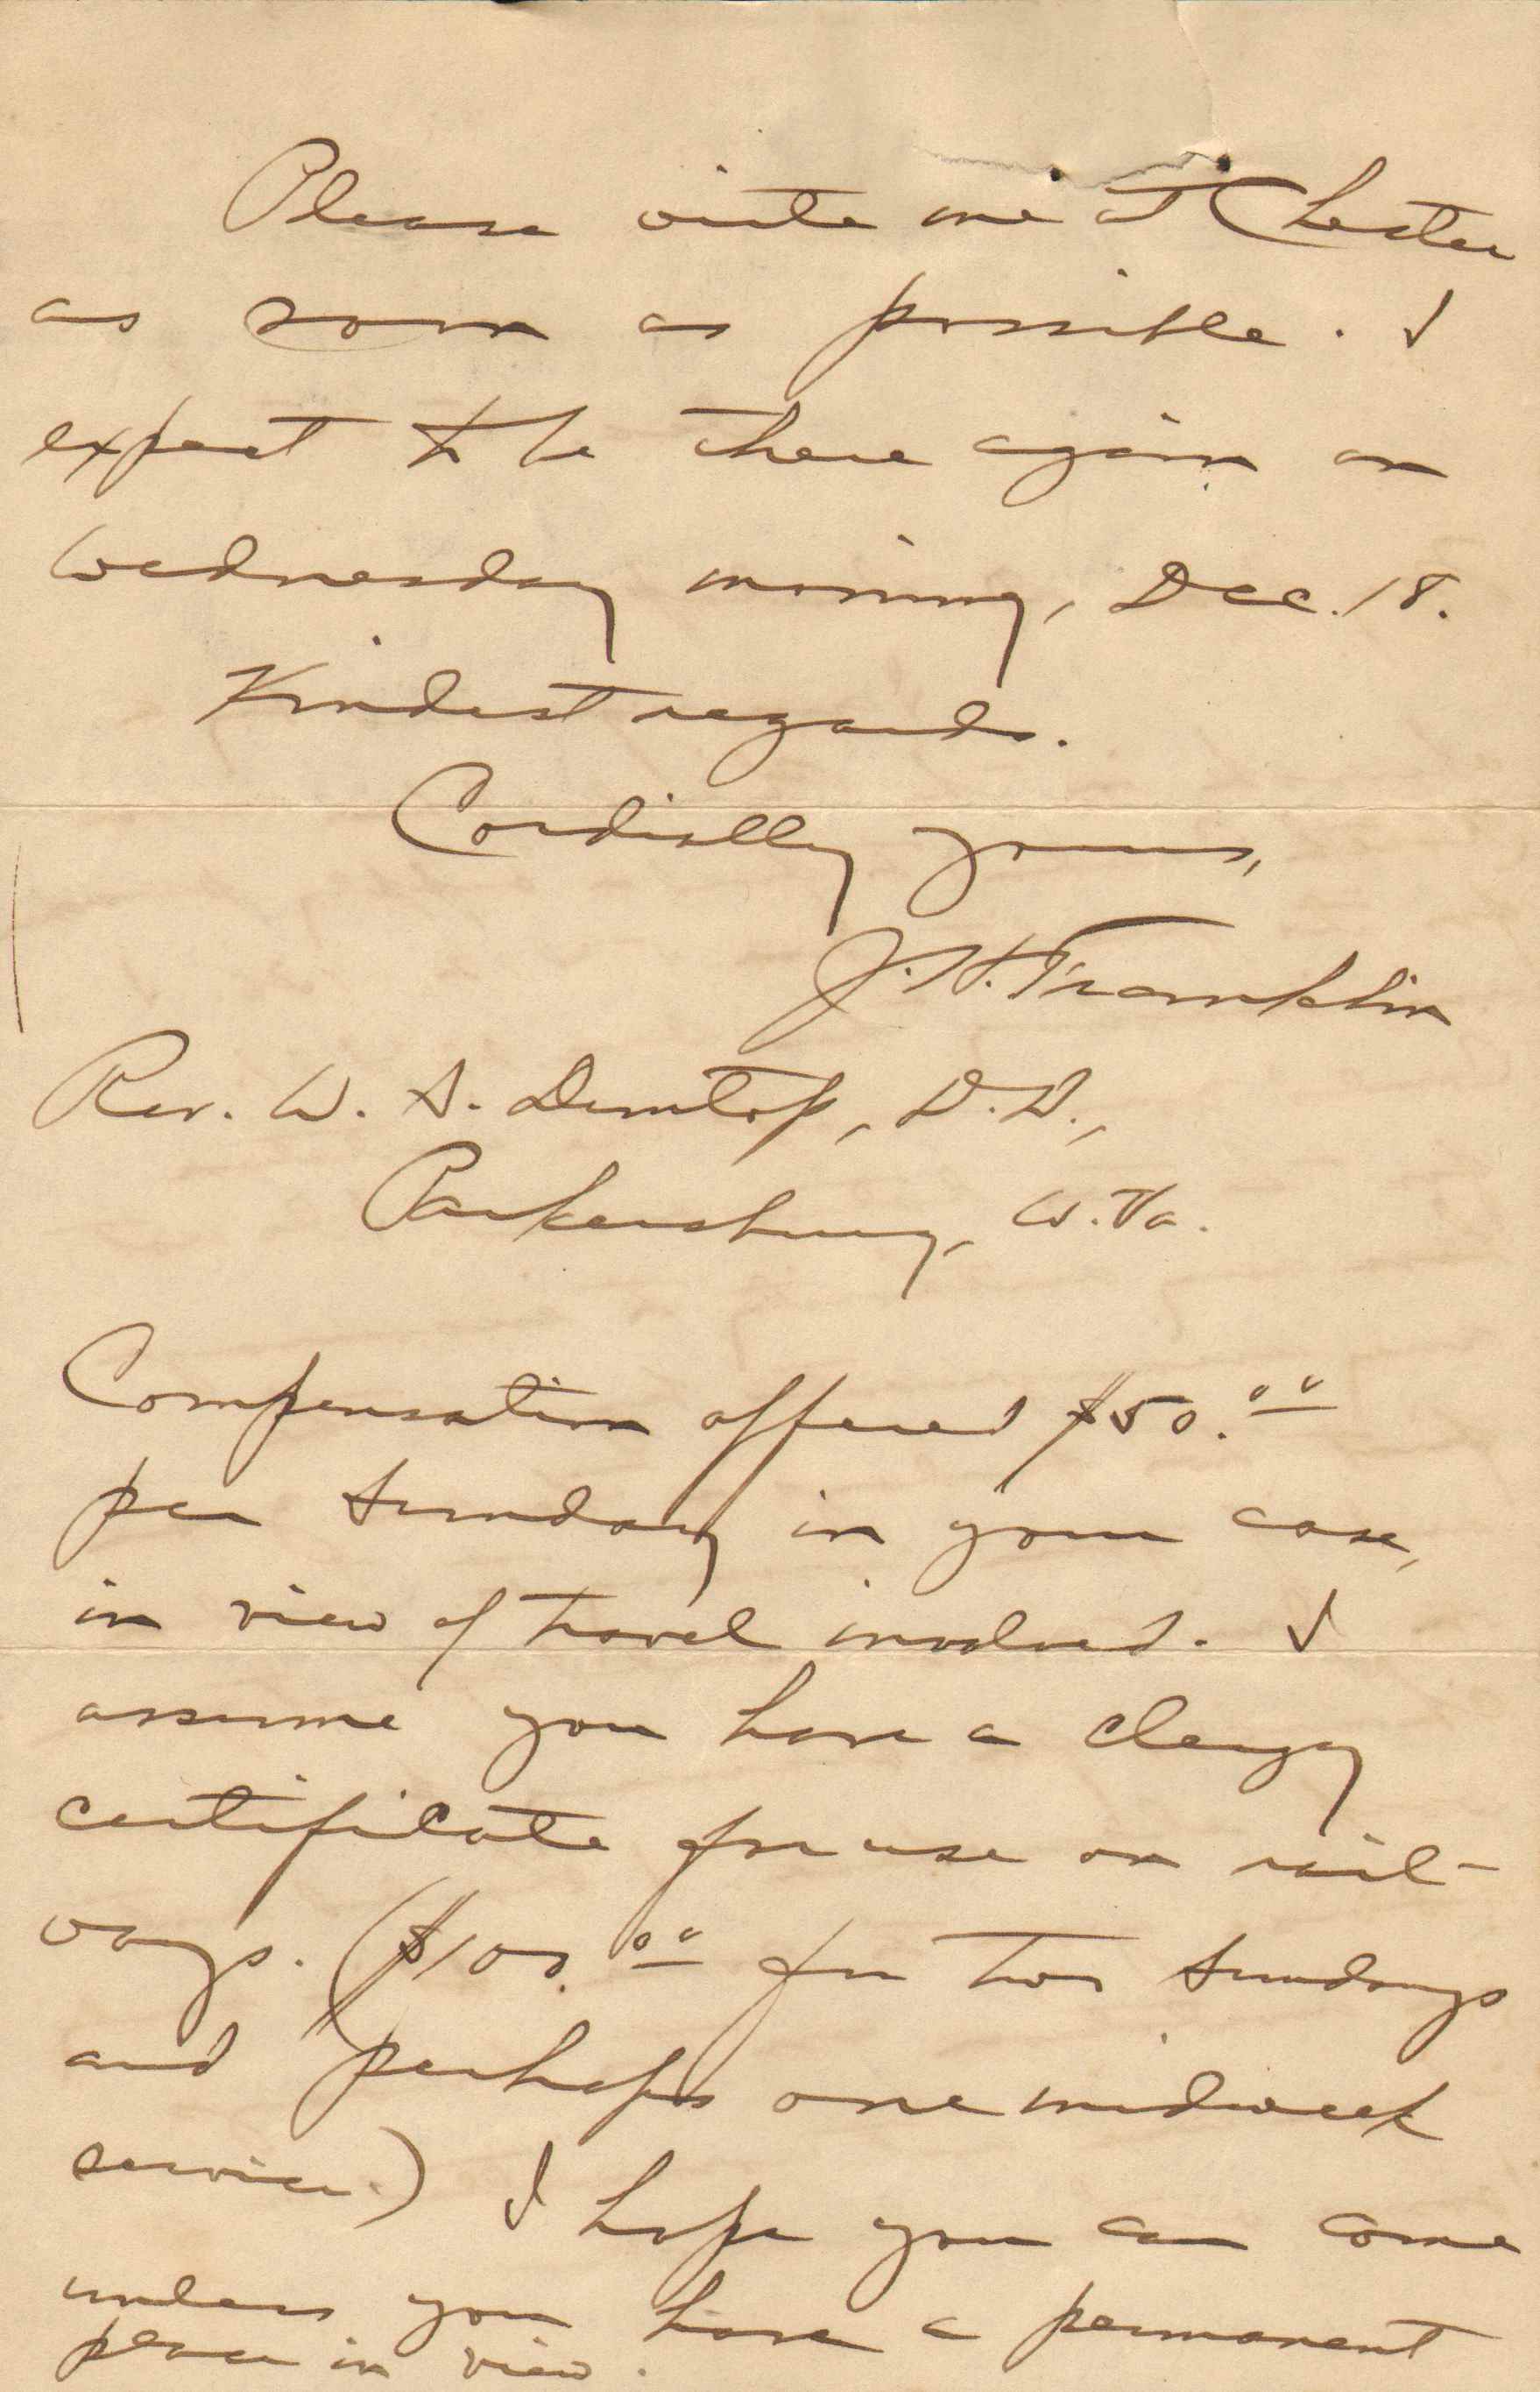 Please write me at Chester
as soon as possible. I
expect to be there again on
Wednesday morning, Dec. 18.
Kindest regards.
Cordially yours,
J. H. Franklin
Rev. W. S. Dunlop, D.D.,
Parkersburg, W. Va.
Compensation offered $50.00
per Sunday in your case,
in view of travel involved. I
assume you have a clergy
certificate for use on rail-
ways. ($100.00 for two Sundays
and perhaps one midweek
service.) I hope you can come
unless you have a permanent
place in view.